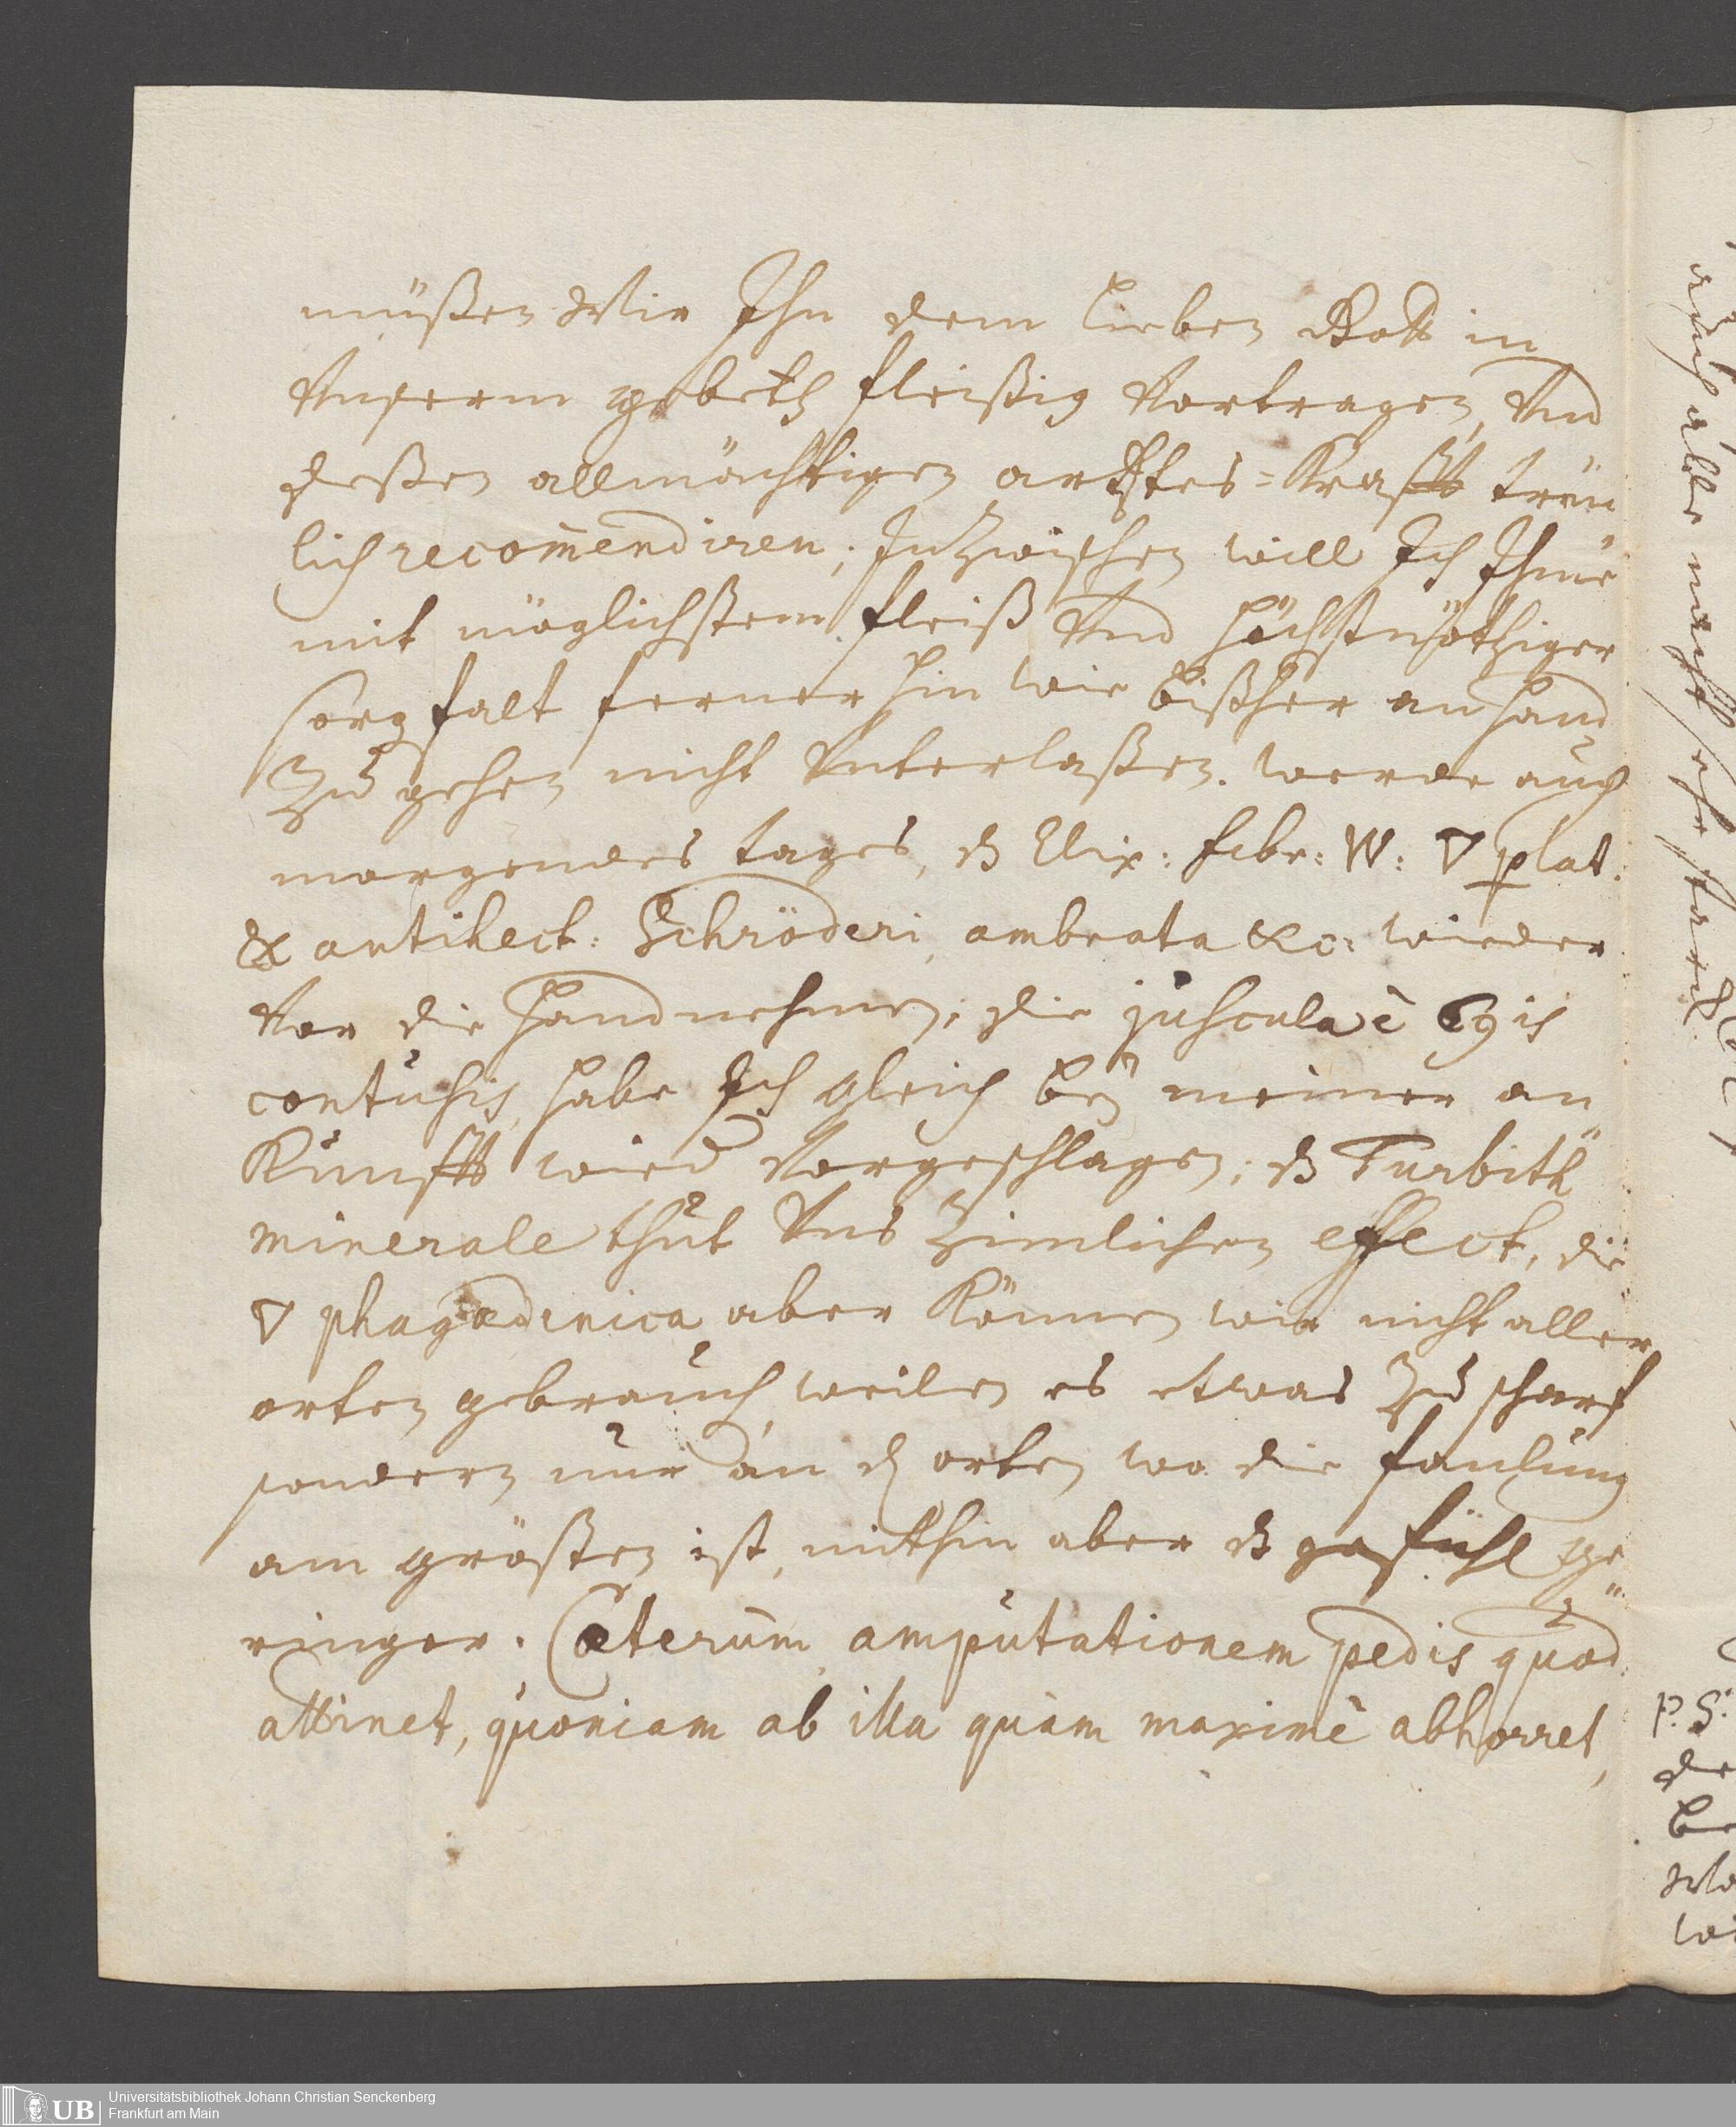 müßen Wir Ihn dem lieben Gott in
Unserm gebeth fleißig Vortragen, Und
deßen allmächtigen artztes=Krafft treü
lich recom̄endiren; Inzwischen will Ich Ihme
mit möglichstem fleiß Und höchstnöthiger
sorgfalt ferner hin wie bißher an hand
Zu gehen nicht Unterlaßen. werde auch
morgendes tages, ds Elix: febr: W: 🜄 plat.
& antihect: Schröderi, ambrata &c: wieder
Vor die Hand nehmen; die juscula è 69is
contusis, habe Ich gleich beÿ meiner an
Kunfft wied Vorgeschlagen; ds Turbith
minerale thut Uns Zimlichen effect, die
🜄 phagædenica aber Können wir nicht aller
orten gebrauch, weilen es etwas Zu scharf
sondern nur an d orten wo die faulung
am grösten ist, mithin aber ds gefühl ge
ringer. Cæterum amputationem pedis quod
attinet, quoniam ab illa quàm maximè abhorret,
auch alle nacht sehr starck
P. S.
Universitätsbibliothek Johann Christian Senckenberg
Frankfurt am Main
UB